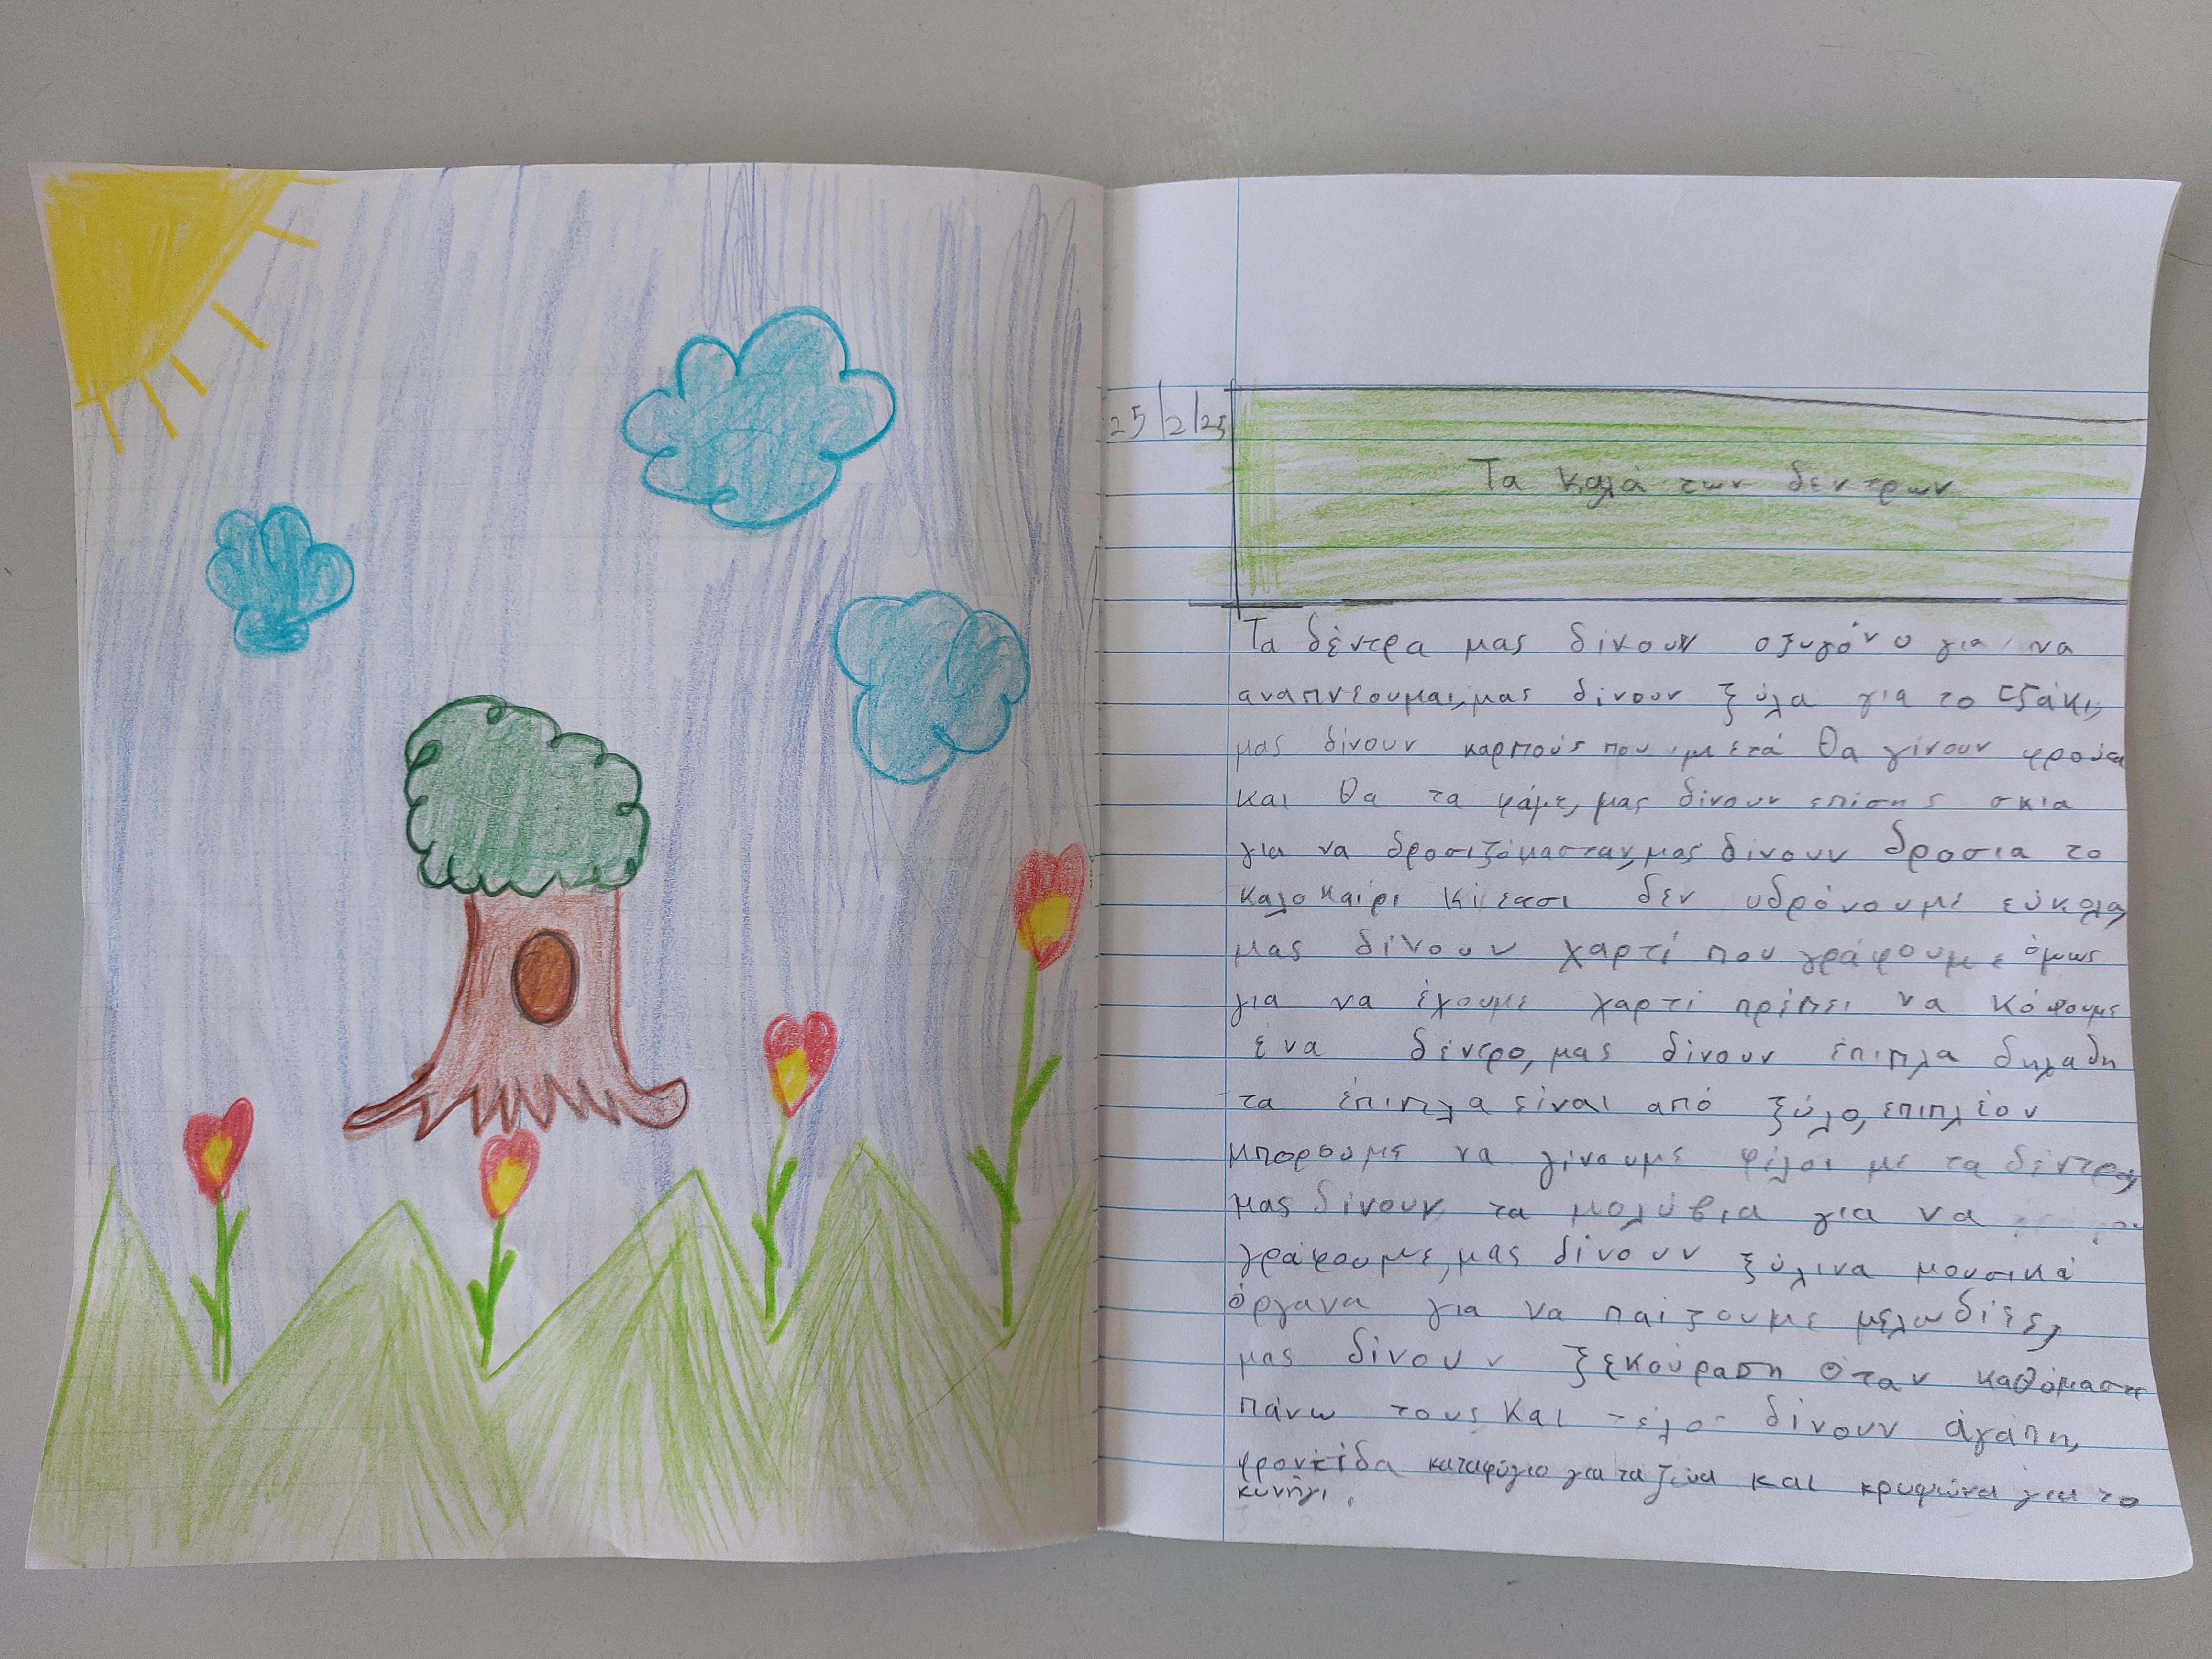 25/2/25
Τα καλά των δεντρων
Τα δέντρα μας δίνουν οξυγόνο για να
αναπνέουμαι, μας δίνουν ξύλα για το τζάκι,
μας δίνουν καρπούς που μετά θα γίνουν φρούτα
και θα τα φάμε, μας δίνουν επίσης σκια
για να δροσιζόμασταν, μας δίνουν δροσια το
καλοκαίρι κι έτσι δεν υδρόνουμε εύκολα,
μας δίνουν χαρτί που γράφουμε όμως
για να έχουμε χαρτί πρέπει να κόψουμε
ένα δέντρο, μας δίνουν έπιπλα δηλαδη
τα έπιπλα είναι από ξύλο, επιπλέον
μπορουμε να γίνουμε φίλοι με τα δέντρα,
μας δίνουν τα μολύβια για να
γράφουμε, μας δίνουν ξύλινα μουσικά
όργανα για να παίζουμε μελωδίες,
μας δίνουν ξεκούραση όταν καθόμαστε
πάνω τους και τέλος δίνουν άγάπη,
φροντίδα καταφύγιο για τα ζώα και κρυψώνα για το
κυνήγι.